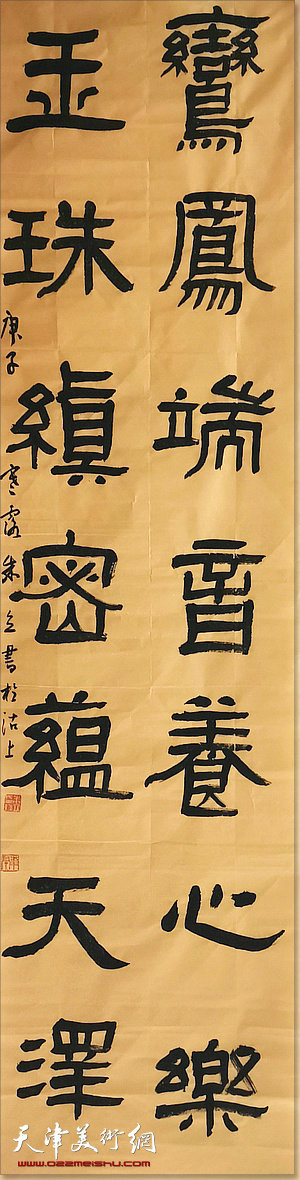 鸞鳳端音養心樂
玉珠縝密蘊天澤
庚子寒露朱立書於沽上
天津美術網
www.022meishu.com